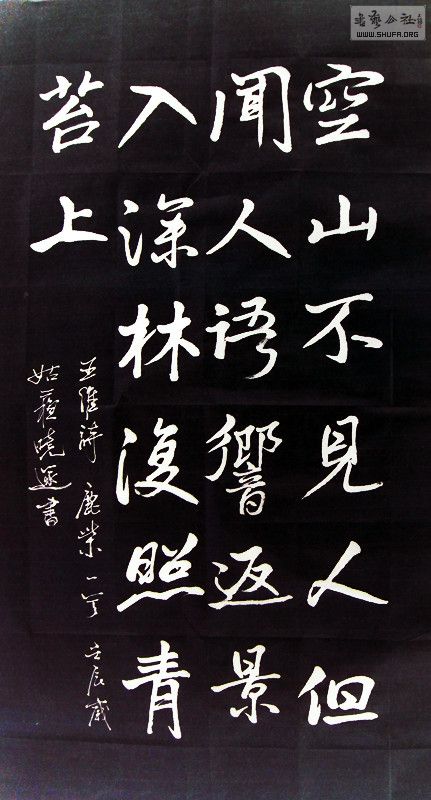 書藝公社
WWW.SHUFA.ORG
空山不見人但
聞人語響返景
入深林復照青
苔上
王維詩 鹿柴一首 壬辰歲
姑蘇曉書